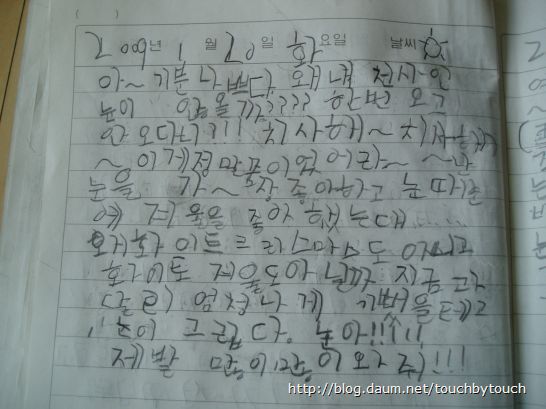 2009년 1월 20일 화요일 날씨
아~ 기분 나쁘다. 왜 내 천사인
눈이 안 올까???? 한번 오고
안 오다니?!! 치사해~ 치사해
~ 이게 정말 꿈이었어라~ ~난
눈을 가~장 좋아하고 눈 따
에 겨울을 좋아했는데......
화이트 크리스마스도 아니고
화이트 겨울도 아닐까 지금
엄청나게 기뻤을 텐
눈이 그립다. 눈아!!!!!
제발 많이많이 와 줘!!!
http://blog.daum.net/touchbytouch